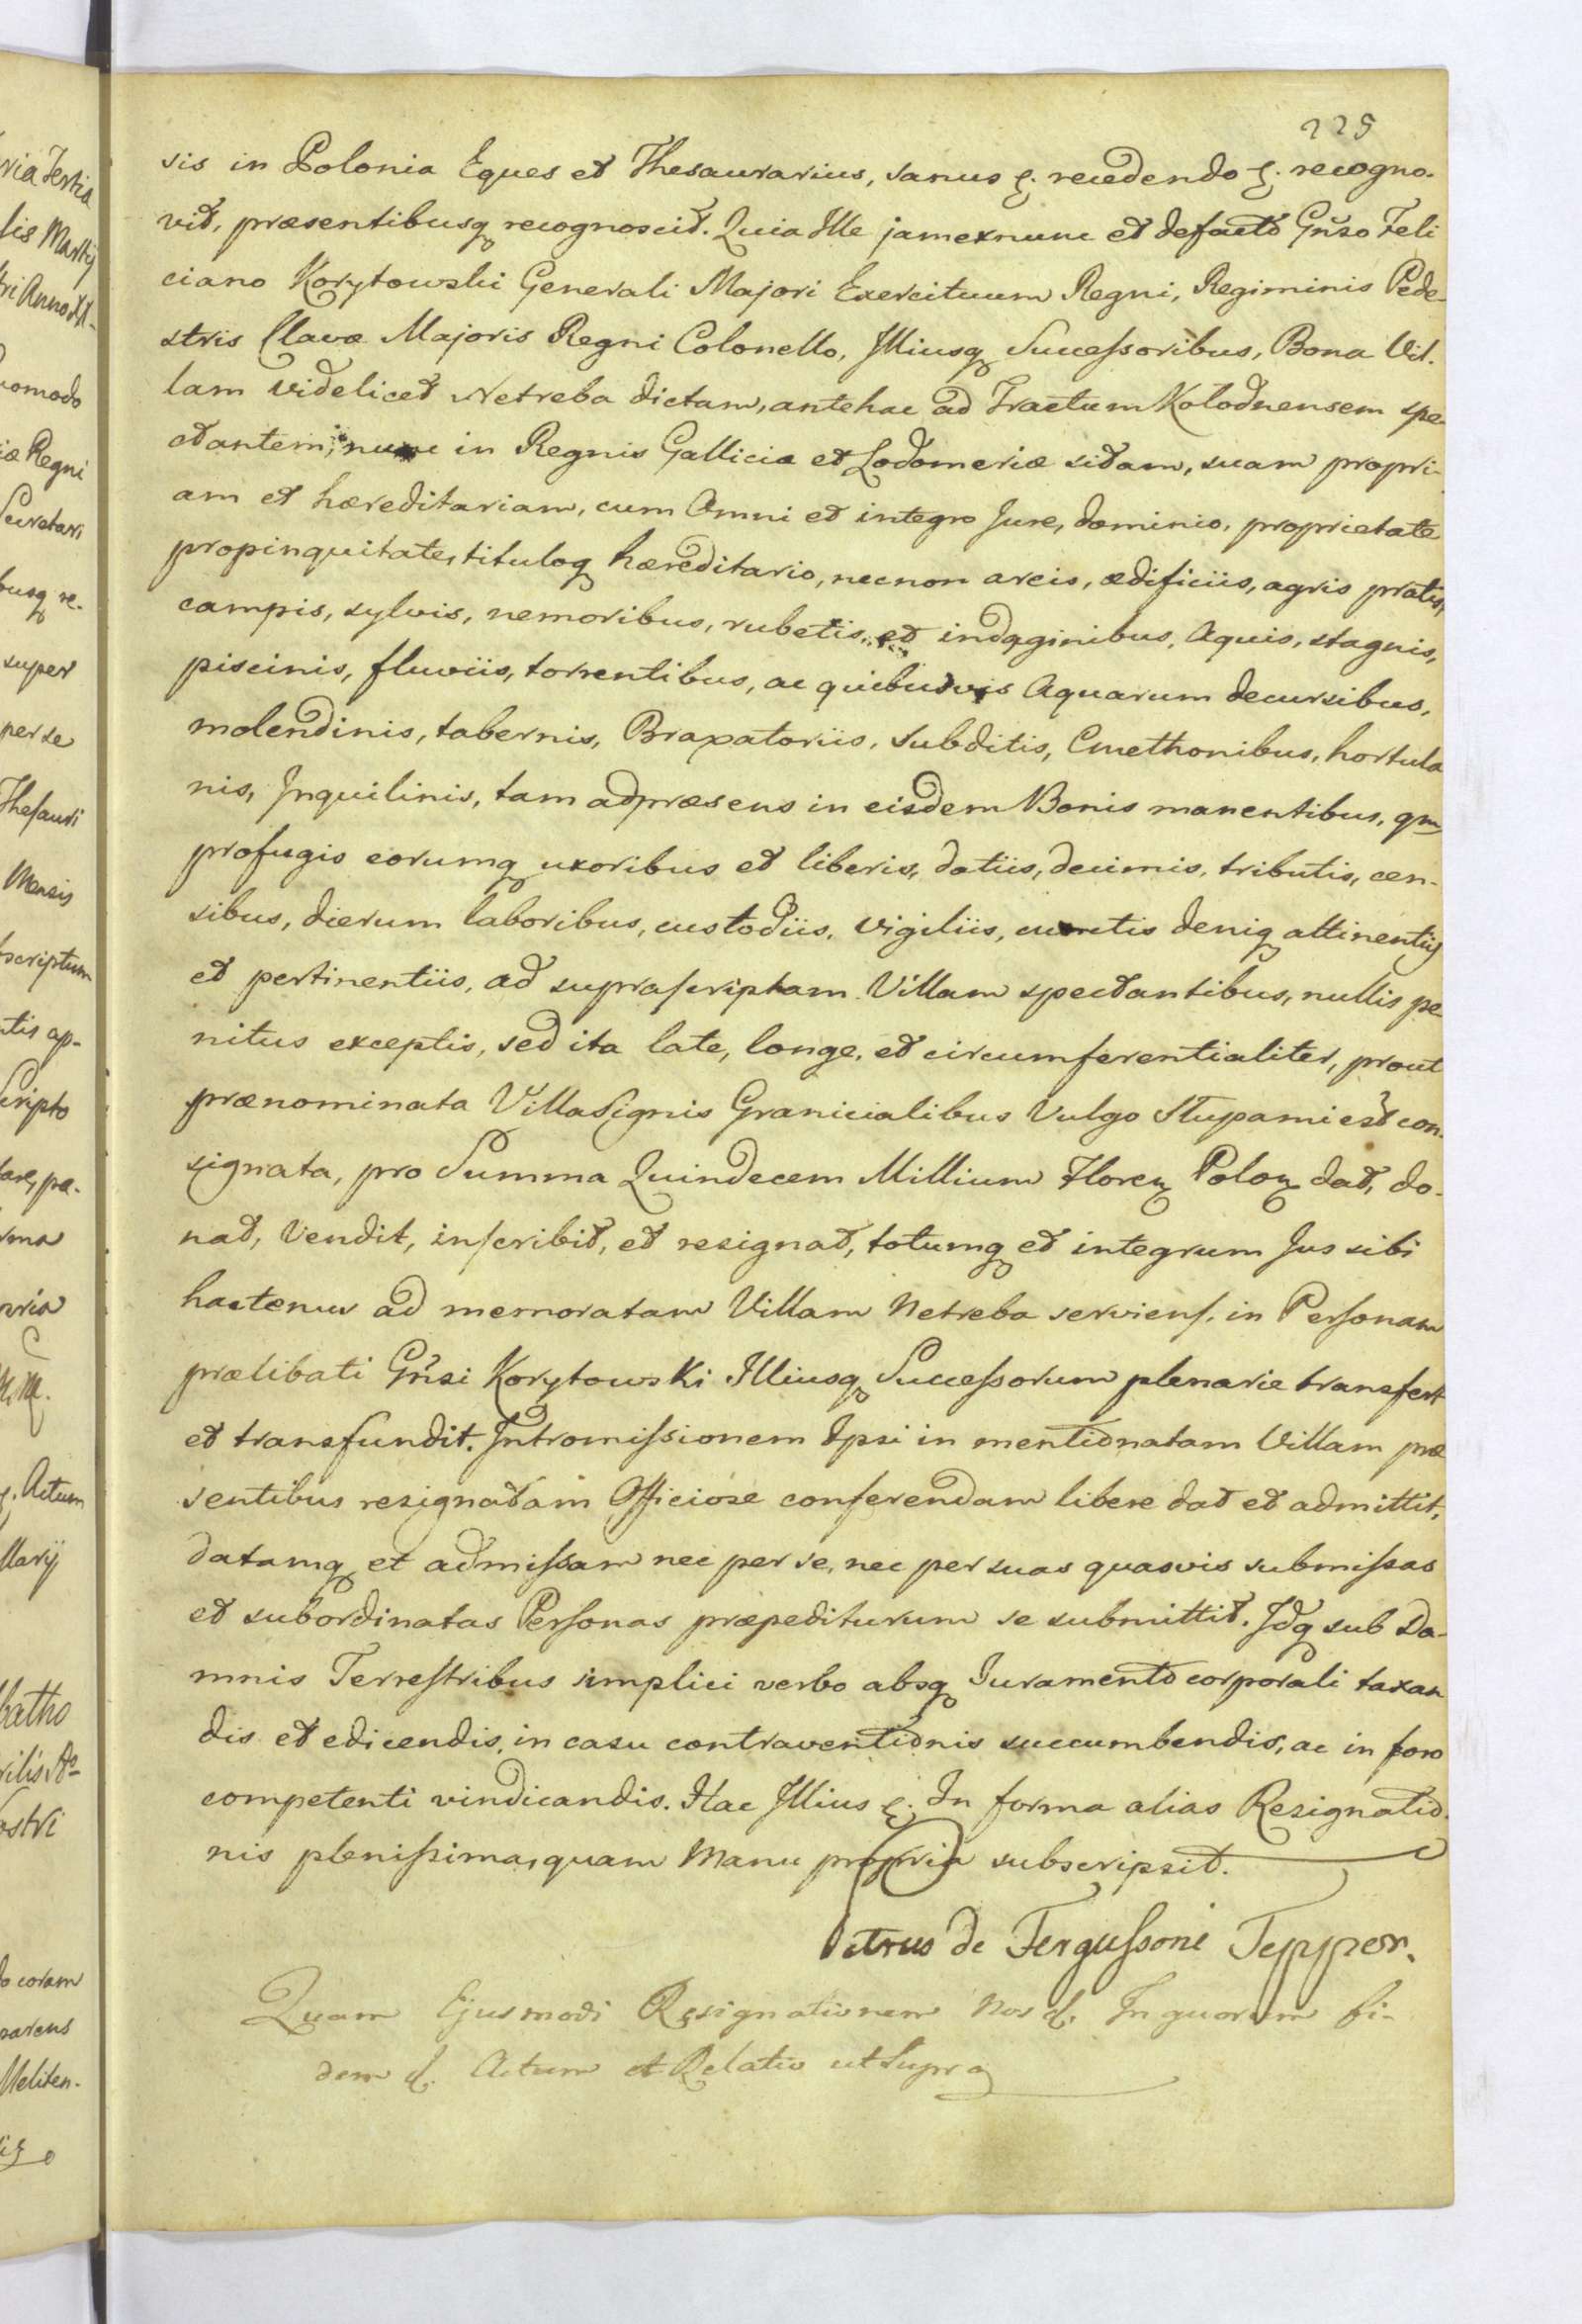 225
sis in Polonia Eques et Thesaurarius, sanus &. recedendo &. recogno-
vit, præsentibusq recognoscit. Quia Ille jamexnunc et defacto Gnso Feli
ciano Korytowski Generali Majori Exercituum Regni, Regiminis Pede-
stris Clavæ Majoris Regni Colonello, Illiusq Successoribus, Bona Vil-
lam videlicet Netreba dictam, antehac ad Tractum Kołodnensem spe-
ctantem, nunc in Regnis Galliciæ et Lodomeriæ sitam, suam propri-
am et hæreditariam, cum Omni et integro Jure, dominio, proprietate
propinquitate, tituloq hæreditario, necnon areis, ædificiis, agris pratis,
campis, sylvis, nemoribus, rubetis, et indaginibus, Aquis, stagnis,
piscinis, fluviis, torrentibus, ac quibusvis Aquarum decursibus,
molendinis, tabernis, Braxatoriis, Subditis, Cmethonibus, hortula
nis, Inquilinis, tam adpræsens in eisdem Bonis manentibus, qm
profugis eorumq uxoribus et liberis, datiis, decimis, tributis, cen-
sibus, dierum laboribus, custodiis, vigiliis, cunctis deniq attinentiis
et pertinentiis, ad suprascriptam Villam spectantibus, nullis pe
nitus exceptis, sed ita late, longe, et circumferentialiter, prout
prænominata Villa Signis Granicialibus Vulgo Słupami est con-
signata, pro Summa Quindecem Millium Floren Polon dat, do-
nat, Vendit, inscribit, et resignat, totumq et integrum Jus sibi
hactenus ad memoratam Villam Netreba serviens, in Personam
prælibati Gnsi Korytowski Illiusq Successorum plenarie transfert
et transfundit. Intromissionem Ipsi in mentionatam Villam præ
sentibus resignatam Officiose conferendam libere dat et admittit,
datamq et admissam nec per se, nec per suas quasvis submissas
et subordinatas Personas præpediturum se submittit. Idq sub Da-
mnis Terrestribus simplici verbo absq Juramento corporali taxan
dis et edicendis, in casu contraventionis succumbendis, ac in foro
competenti vindicandis. Hac Illius &. In forma alias Resignatio-
nis plenissima, quam Manu propria subscripsit.
Petrus de Fergussone Tepper.
Quam Ejusmodi Resignationem Nos &. In quorum fi-
dem &. Actum et Relatio ut Supra